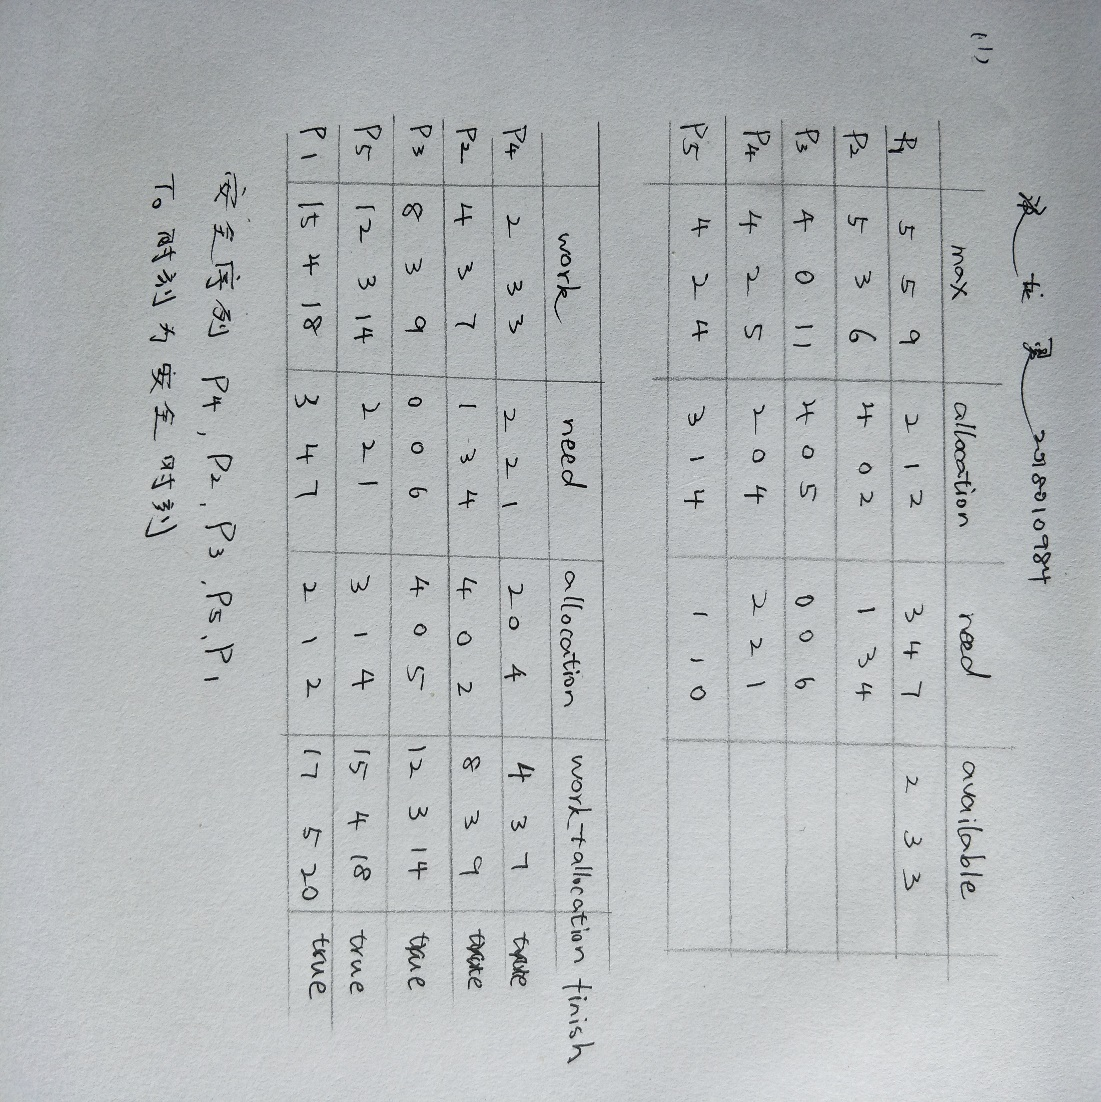 2018010984
(1)
max allocation need available
P1 5 5 9 2 1 2 3 4 7 2 3 3
P2 5 3 6 4 0 2 1 3 4
P3 4 0 11 4 0 5 0 0 6
P4 4 2 5 2 0 4 2 2 1
P5 4 2 4 3 1 4 1 1 0
work need allocation work+allocation finish
P4 2 3 3 2 2 1 2 0 4 4 3 7 true
P2 4 3 7 1 3 4 4 0 2 8 3 9 true
P3 8 3 9 0 0 6 4 0 5 12 3 14 true
P5 12 3 14 2 2 1 3 1 4 15 4 18 true
P1 15 4 18 3 4 7 2 1 2 17 5 20 true
安全序列 P4, P2, P3, P5, P1
T0 时刻为安全时刻